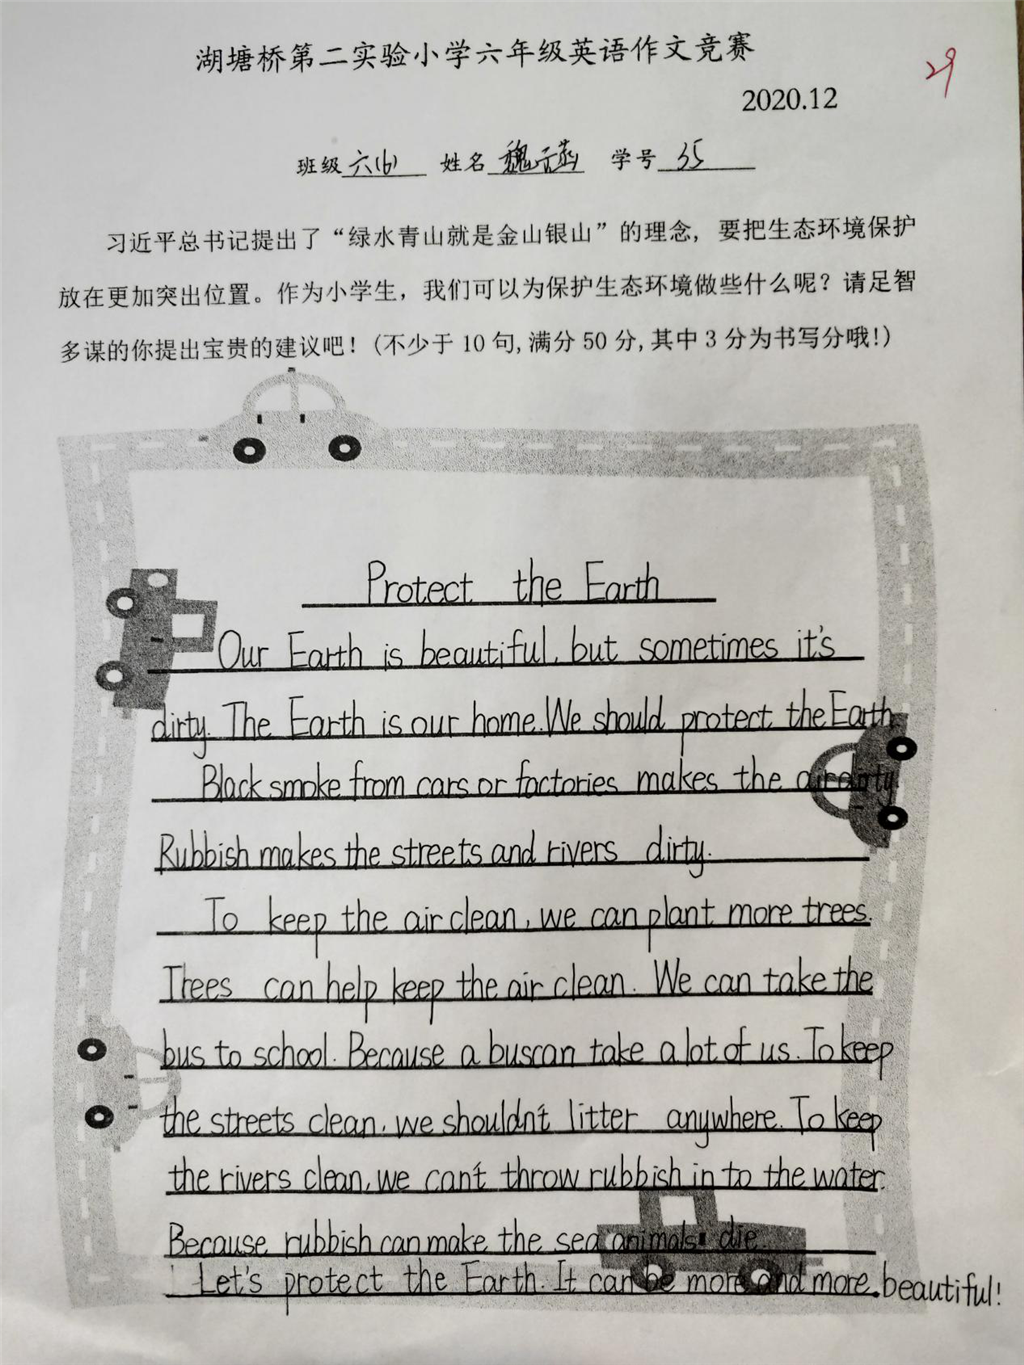 湖塘桥第二实验小学六年级英语作文竞赛
29
2020.12
班级 六(6) 姓名 魏云菡 学号 35
习近平总书记提出了“绿水青山就是金山银山”的理念，要把生态环境保护
放在更加突出位置。作为小学生，我们可以为保护生态环境做些什么呢？请足智
多谋的你提出宝贵的建议吧！(不少于10句,满分50分,其中3分为书写分哦!)
Protect the Earth
Our Earth is beautiful, but sometimes it's
dirty. The Earth is our home. We should protect the Earth.
Black smoke from cars or factories makes the air dirty.
Rubbish makes the streets and rivers dirty.
To keep the air clean, we can plant more trees.
Trees can help keep the air clean. We can take the
bus to school. Because a bus can take a lot of us. To keep
the streets clean, we shouldn't litter anywhere. To keep
the rivers clean, we can't throw rubbish in to the water.
Because rubbish can make the sea animals die.
Let's protect the Earth. It can be more and more beautiful!